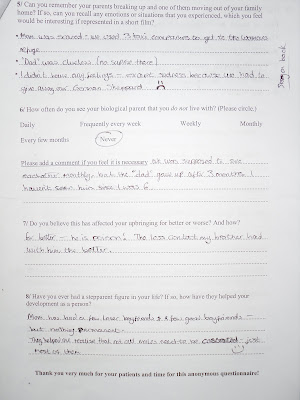 5/ Can you remember your parents breaking up and one of them moving out of your family
home? If so, can you recall any emotions or situations that you experienced, which you feel
would be interesting if represented in a short film?
• Mom was scared - we used 3 taxi companies to get to the womens
refuge
• "Dad" was clueless (no suprise there)
• I didn't have any feelings - maybe sadness because we had to
give away our German Shepeard
6/ How often do you see your biological parent that you do not live with? (Please circle.)
Daily Frequently every week Weekly Monthly
Every few months Never
Please add a comment if you feel it is necessary. We was supposed to see
eachother monthly, but the "dad" gave up after 3 months. I
haven't seen him since I was 6.
7/ Do you believe this has affected your upbringing for better or worse? And how?
For better - he is The less contact my brother had
with him the better.
8/ Have you ever had a stepparent figure in your life? If so, how have they helped your
development as a person?
Mom has had a few loser boyfriends & a few good boyfriends -
but nothing permanent -
They helped me realise that not all males need to be castrated - just
most of them
Thank you very much for your patients and time for this anonymous questionnaire!